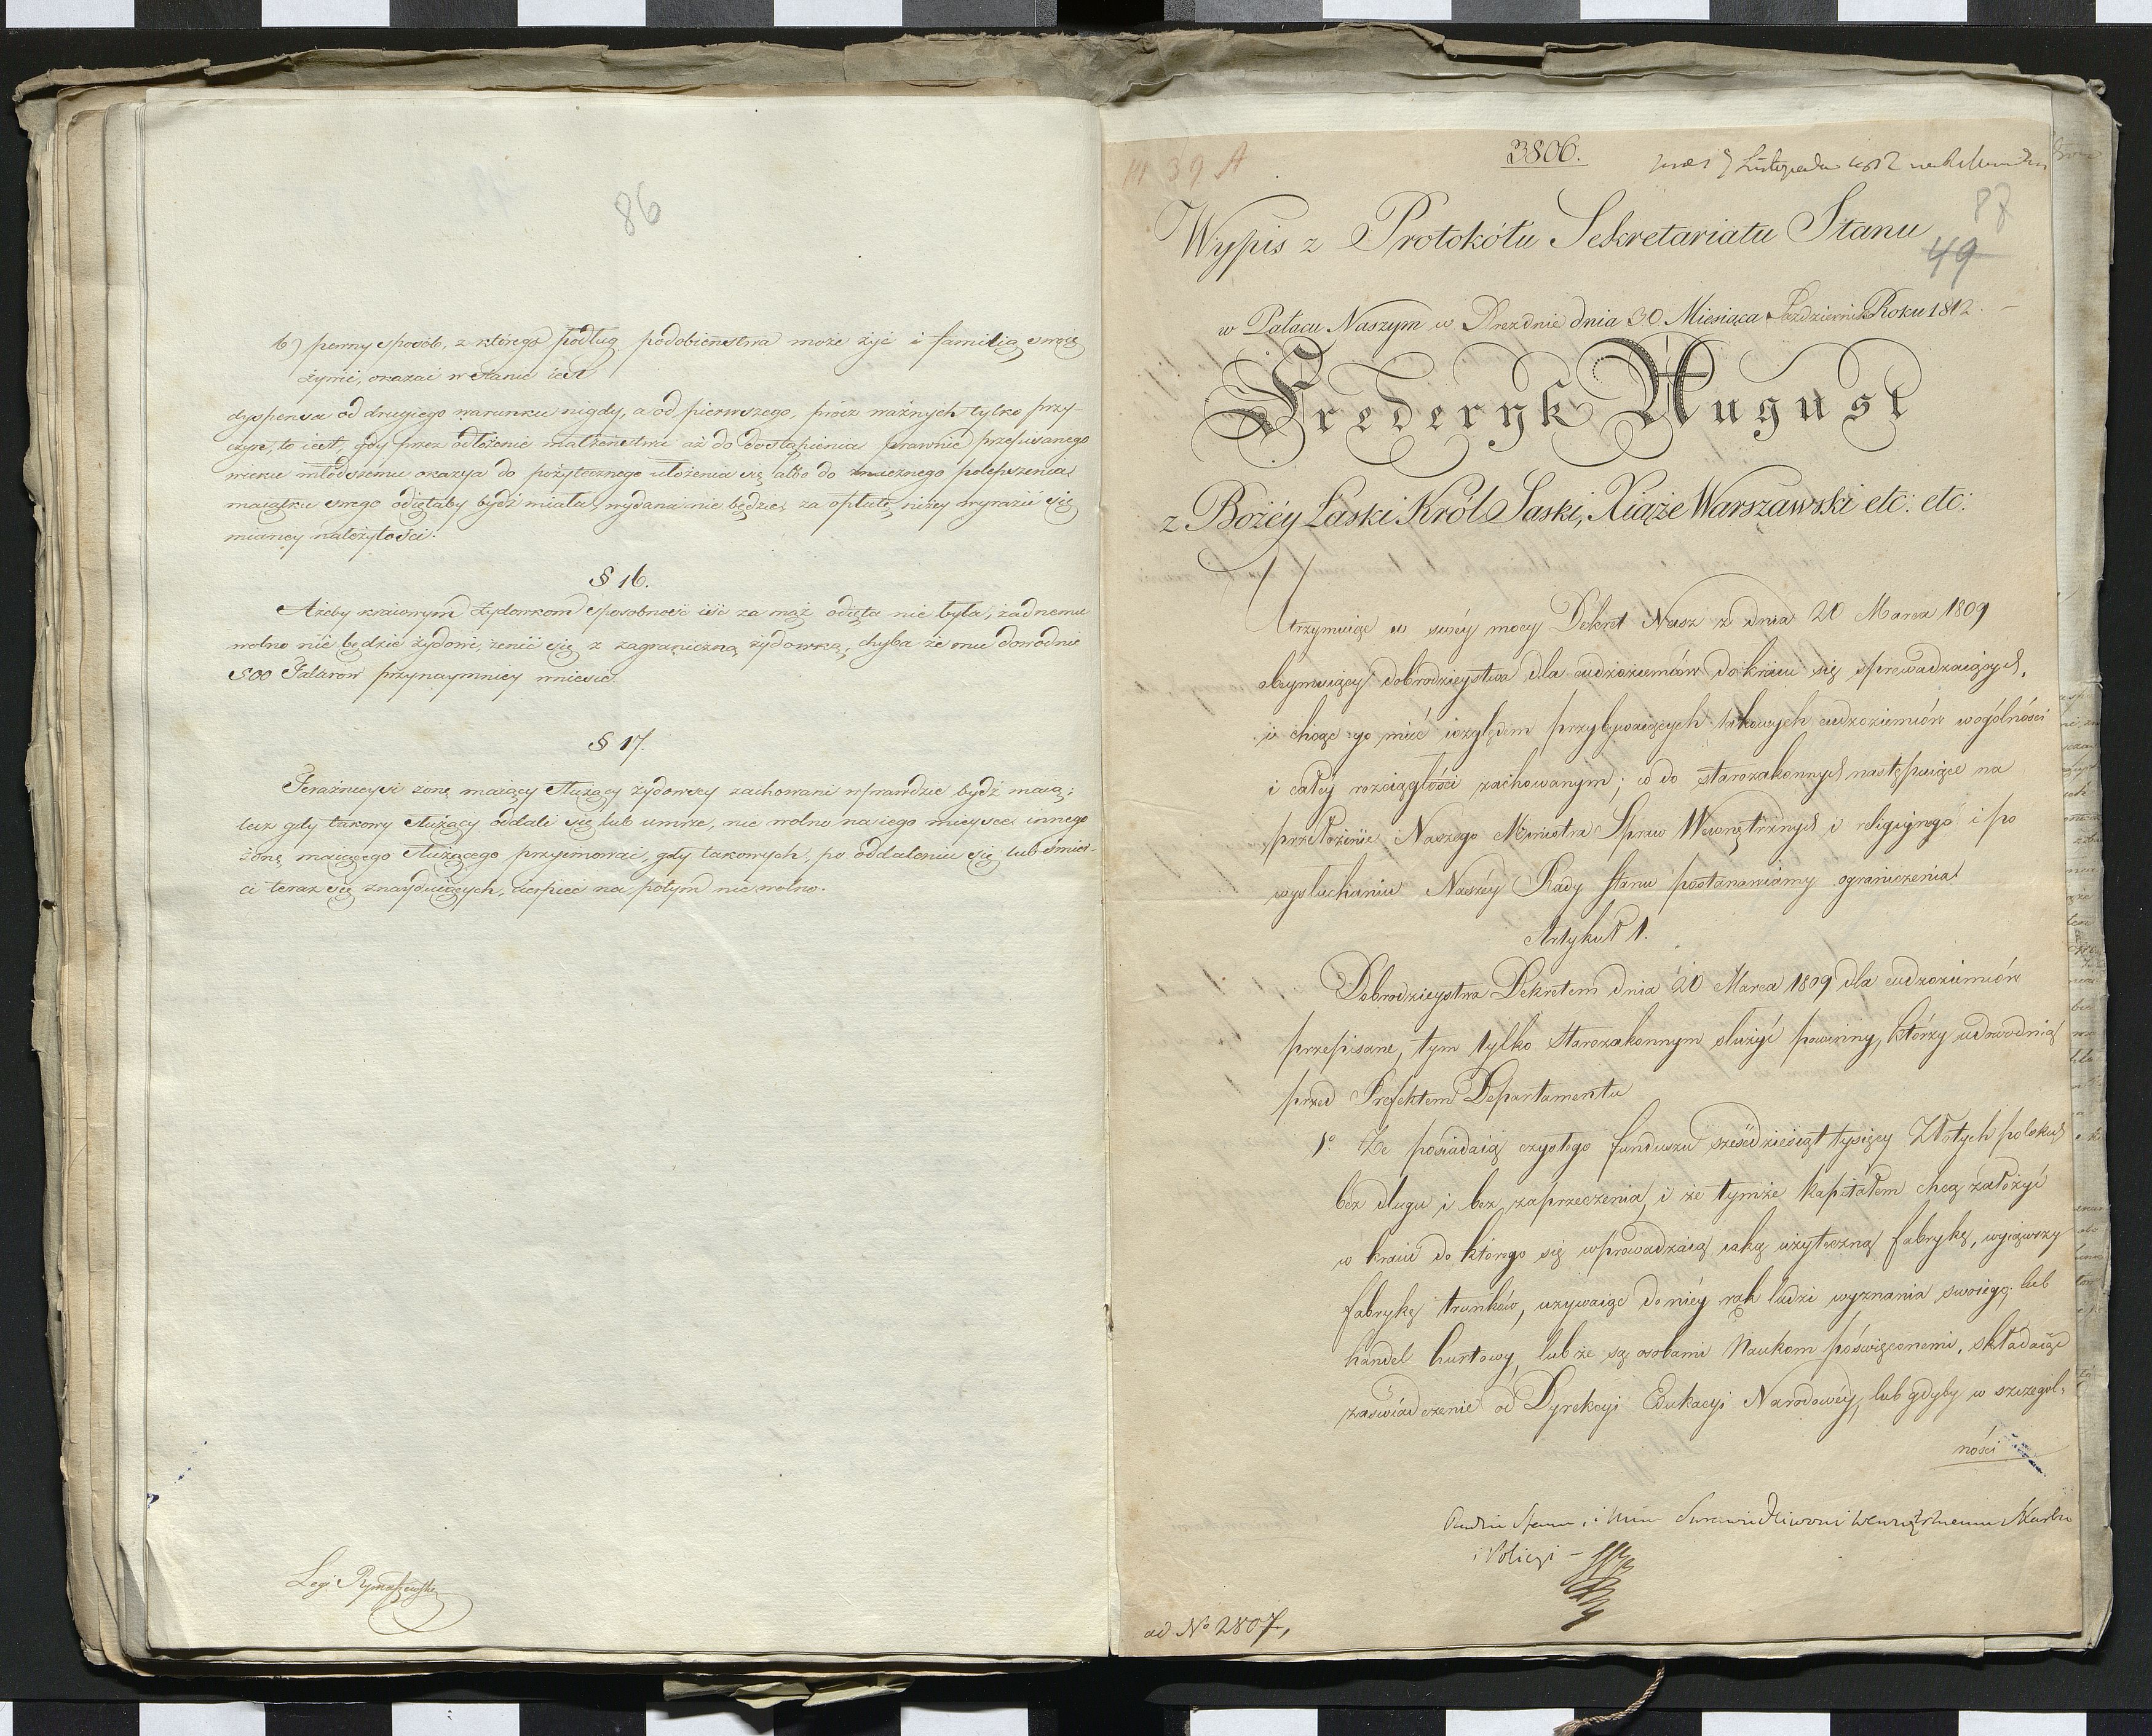 86
b) pewny sposób, z którego podług podobieństwa może żyć i familią swoię
żywić, okazać w stanie iest
dyspensa od drugiego warunku nigdy, a od pierwszego, prócz ważnych tylko przy-
czyn, to iest, gdy przez odłożenie małżeństwa aż do dostąpienia prawnie przepisanego
wieku młodszemu okazya do pożytecznego ułożenia się albo do znacznego polepszenia
maiątku swego odiętaby bydź miała, wydana nie będzie, za opłatę niżey wyrazić się
mianey należytości.
§ 16.
Ażeby kraiowym żydowkom sposobność iść za mąż odięta nie była, żadnemu
wolno nie będzie żydowi, żenić się z zagraniczną żydowką, chyba że mu dowodnie
500 Talarow przynaymniey wniesie.
§ 17.
Teraźnieysi żonę maiący służący żydowscy zachowani wprawdzie bydź maią;
lecz gdy takowy służący oddali się lub umrze, nie wolno na iego mieysce innego
żonę maiącego służącego przyimować, gdy takowych, po oddaleniu się lub śmier-
ci teraz się znayduiących, cierpieć na potym nie wolno.
Legi Rymaszewski
3806.
III 39 A
9 Listopada 1812
87
49
Wypis z Protokółu Sekretariatu Stanu
w Pałacu Naszym w Dreznie dnia 30 Miesiąca Październik Roku 1812.
Fryderyk August
z Bożéy Łaski Król Saski, Xiąże Warszawski etc: etc:
Utrzymuiąc w swéy mocy Dekret Nasz z dnia 20 Marca 1809
obeymuiący dobrodzieystwa dla cudzoziemców do kraiu się sprowadzaiących,
i chcąc go mieć względem przybywaiących takowych cudzoziemców w ogólności
i całéy rozciągłości zachowanym; co do starozakonnych następuiące na
przełożenie Naszego Ministra Spraw Wewnętrznych i religijnego i po
wysłuchaniu Naszéy Rady Stanu postanawiamy ograniczenia
Artykuł 1.
Dobrodzieystwa Dekretem dnia 20 Marca 1809 dla cudzoziemców
przepisane, tym tylko Starozakonnym służyć powinny, którzy udowodnią
przed Prefektem Departamentu
1° Że posiadaią czystego funduszu sześćdziesiąt tysięcy Złotych polskich
bez długu i bez zaprzeczenia, i że tymże kapitałem chcą założyć
w kraiu do którego się wprowadzaią iaką użyteczną fabrykę, wyiąwszy
fabrykę trunków, używaiąc do niéy rąk ludzi wyznania swoiego; lub
handel hurtowy, lub że są osobami Naukom poświęconemi, składaiąc
zaświadczenie od Dyrekcyi Edukacyi Narodowéy, lub gdyby w szczegól-
ności
Radzie Stanu, i Min Sprawiedliwości Wewnętrznemu Skarbu
i Policyi -
ad N° 2807,